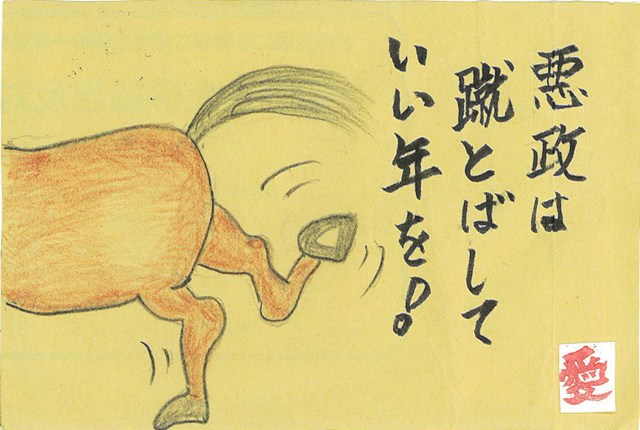 悪政は
蹴とばして
いい年を!
愛